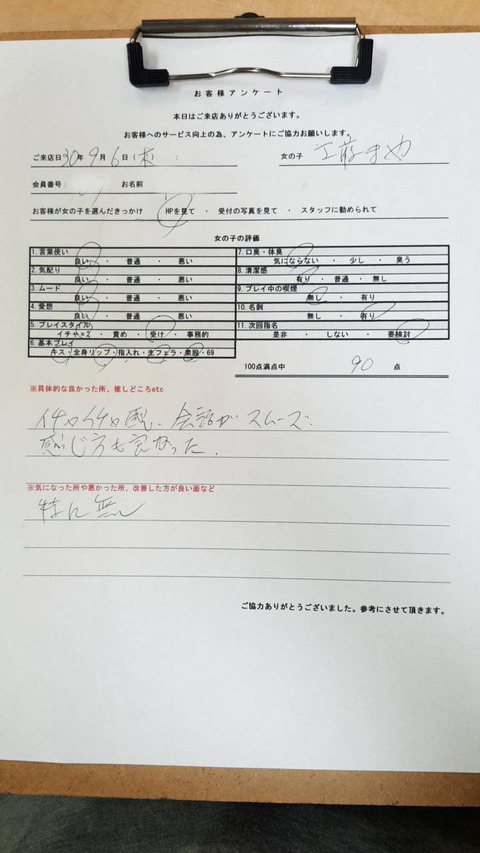 お客様アンケート
本日はご来店ありがとうございます。
お客様へのサービス向上の為、アンケートにご協力お願いします。
ご来店日 30年 9月 6日(木) : 女の子 工藤まや
会員番号: お名前
お客様が女の子を選んだきっかけ HPを見て ・ 受付の写真を見て ・ スタッフに勧められて
女の子の評価
1. 言葉使い
良い ・ 普通 ・ 悪い
2. 気配り
良い ・ 普通 ・ 悪い
3. ムード
良い ・ 普通 ・ 悪い
4. 愛想
良い ・ 普通 ・ 悪い
5. プレイスタイル
イチャ×2 ・ 責め ・ 受け ・ 事務的
6. 基本プレイ
キス・全身リップ・指入れ・生フェラ・素股・69
7. 口臭・体臭
気にならない ・ 少し ・ 臭う
8. 清潔感
有り ・ 普通 ・ 無し
9. プレイ中の喫煙
無し ・ 有り
10. 名刺
無し ・ 有り
11. 次回指名
是非 ・ しない ・ 要検討
100点満点中 90 点
※具体的な良かった所、推しどころetc
イチャイチャ感、会話がスムーズ
感じ方も良かった.
※気になった所や悪かった所、改善した方が良い面など
特に無し
ご協力ありがとうございました。参考にさせて頂きます。